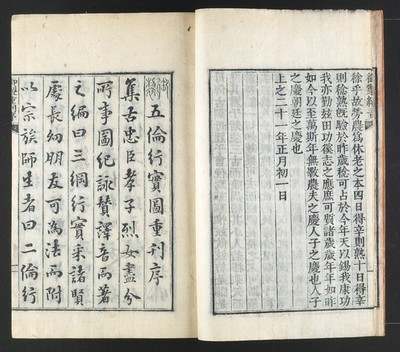 徐乎故勞農爲休老之本四日得辛則熟十日得辛
則稔熟旣驗於昨歲稔可占於今年天以錫我康功
我亦勤玆田功豯志之應庶可質諸歲歲年年如昨
如今以至萬斯年無斁農夫之慶人子之慶也人子
之慶朝廷之慶也
上之二十一年正月初一日
五倫行實圖重刊序
集古忠臣孝子烈女盡分
所事圖紀詠賛譯音而著
之編曰三綱行實采諸賢
處長幼朋友可爲法而附
以宗族師生者曰二倫行